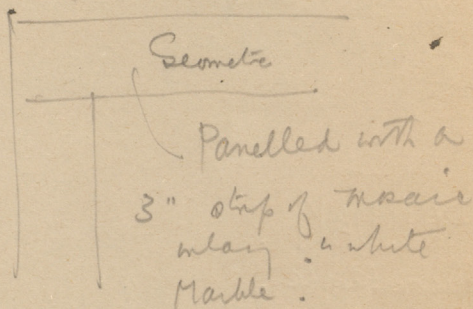 Geometric
Panelled with a
3" strip of mosaic
inlay in white
Marble.